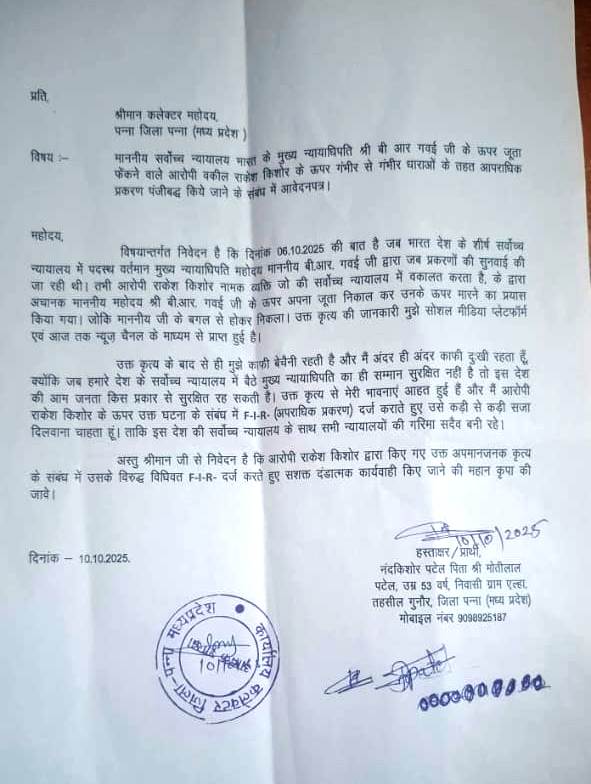 प्रति,
श्रीमान कलेक्टर महोदय,
पन्ना जिला पन्ना (मध्य प्रदेश )
विषय :– माननीय सर्वोच्च न्यायालय भारत के मुख्य न्यायाधिपति श्री बी आर गवई जी के ऊपर जूता
फेंकने वाले आरोपी वकील राकेश किशोर के ऊपर गंभीर से गंभीर धाराओं के तहत आपराधिक
प्रकरण पंजीबद्ध किये जाने के संबंध में आवेदनपत्र।
महोदय,
विषयान्तर्गत निवेदन है कि दिनांक 06.10.2025 की बात है जब भारत देश के शीर्ष सर्वोच्च
न्यायालय में पदस्थ वर्तमान मुख्य न्यायाधिपति महोदय माननीय बी.आर. गवई जी द्वारा जब प्रकरणों की सुनवाई की
जा रही थी। तभी आरोपी राकेश किशोर नामक व्यक्ति जो की सर्वोच्च न्यायालय में वकालत करता है, के द्वारा
अचानक माननीय महोदय श्री बी.आर. गवई जी के ऊपर अपना जूता निकाल कर उनके ऊपर मारने का प्रयास
किया गया। जोकि माननीय जी के बगल से होकर निकला। उक्त कृत्य की जानकारी मुझे सोशल मीडिया प्लेटफॉर्म
एवं आज तक न्यूज़ चैनल के माध्यम से प्राप्त हुई है।
उक्त कृत्य के बाद से ही मुझे काफी बेचैनी रहती है और मैं अंदर ही अंदर काफी दुःखी रहता हूँ,
क्योंकि जब हमारे देश के सर्वोच्च न्यायालय में बैठे मुख्य न्यायाधिपति का ही सम्मान सुरक्षित नही है तो इस देश
की आम जनता किस प्रकार से सुरक्षित रह सकती है। उक्त कृत्य से मेरी भावनाएं आहत हुई हैं और मैं आरोपी
राकेश किशोर के ऊपर उक्त घटना के संबंध में F-I-R- (अपराधिक प्रकरण) दर्ज कराते हुए उसे कड़ी से कड़ी सजा
दिलवाना चाहता हूं। ताकि इस देश की सर्वोच्च न्यायालय के साथ सभी न्यायालयों की गरिमा सदैव बनी रहे।
अस्तु श्रीमान जी से निवेदन है कि आरोपी राकेश किशोर द्वारा किए गए उक्त अपमानजनक कृत्य
के संबंध में उसके विरुद्ध विधिवत F-I-R- दर्ज करते हुए सशक्त दंडात्मक कार्यवाही किए जाने की महान कृपा की
जावे।
10/10/2025
दिनांक – 10.10.2025.
हस्ताक्षर/प्रार्थी,
नंदकिशोर पटेल पिता श्री मोतीलाल
पटेल, उम्र 53 वर्ष, निवासी ग्राम एल्हा,
तहसील गुनौर, जिला पन्ना (मध्य प्रदेश)
मोबाइल नंबर 9098925187
कार्यालय कलेक्टर जिला-पन्ना मध्यप्रदेश